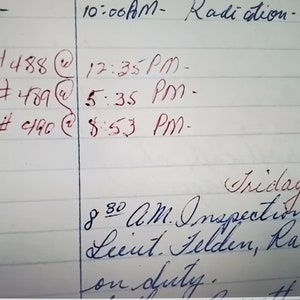 10:00 PM - Radiation -
#488 @ 12:35 PM -
#489 @ 5:35 PM -
#490 @ 8:53 PM -
Friday
8 30 A.M. Inspection
Lieut. Felden, Ra
on duty.